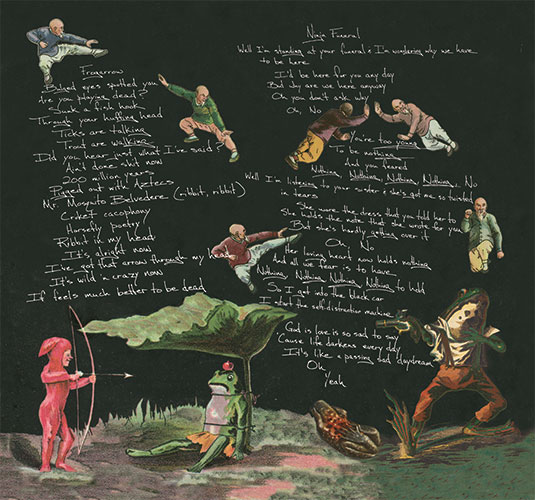 Frogarrow
Bugged eyes spotted you
Are you playing dead?
Sunk a fish hook
Through your huffing head
Ticks are talking
Trout are walking
Did you hear just what I've said?
Ain't done shit now
200 million years
Pigged out with Aztecs
Mr. Mosquito Belvedere (ribbit, ribbit)
Cricket cacophony
Horsefly poetry
Ribbit in my head
It's alright now
I've got that arrow through my head
It's wild & crazy now
It feels much better to be dead
Ninja Funeral
Well I'm standing at your funeral & I'm wondering why we have
to be here
I'd be here for you any day
But why are we here anyway
Oh you don't ask why
Oh, No
You're too young
To be nothing
And you feared
Nothing, Nothing, Nothing, Nothing, No
Well I'm listening to your sister & she's got me so twisted
in tears
She wore the dress that you told her to
She holds the note that she wrote for you
But she's hardly getting over it
Oh, No
Her loving heart now holds nothing
And all we fear is to have
Nothing, Nothing, Nothing, Nothing to hold
So I get into the black car
I start the self-distraction machine
God is love is so sad to say
'Cause life darkens every day
It's like a passing bad daydream
Oh
Yeah